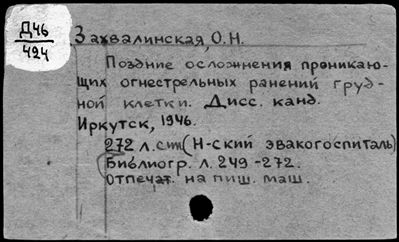 Д46
424
Захвалинская, О.Н.
Поздние осложнения проникаю-
щих огнестрельных ранений груд-
ной клетки. Дисс. канд.
Иркутск, 1946.
272 л. (Н-ский эвакогоспиталь)
Библиогр. л. 249-272.
Отпечат. на пиш. маш.